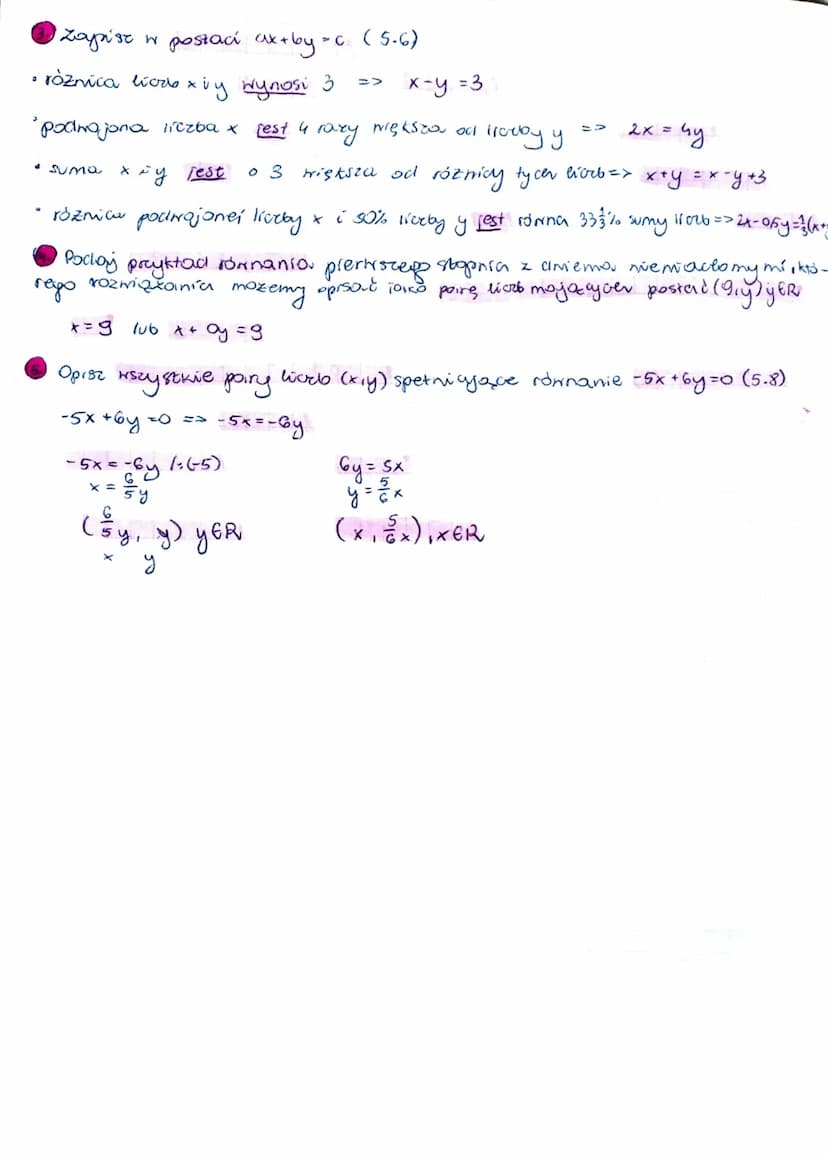 3 Zapisz w postaci ax+by=c (5.6)
• różnica liczb x i y wynosi 3 => x-y=3
• podwojona liczba x jest 4 razy większa od liczby y => 2x = 4y
• suma x i y jest o 3 większa od różnicy tych liczb => x+y = x-y+3
• różnica podwojonej liczby x i 50% liczby y jest równa 33⅓% sumy liczb => 2x-0,5y=⅓(x+
Podaj przykład równania pierwszego stopnia z dwiema niewiadomymi, któ-
rego rozwiązania możemy opisać jako parę liczb mających postać (9,y) y∈R
x=9 lub x+0y=9
Opisz wszystkie pary liczb (x,y) spełniające równanie -5x+6y=0 (5.8)
-5x+6y=0 => -5x=-6y
-5x=-6y /:(-5) 6y=5x
x = 6/5 y y = 5/6 x
(6/5 y, y) y∈R (x, 5/6 x), x∈R
x y